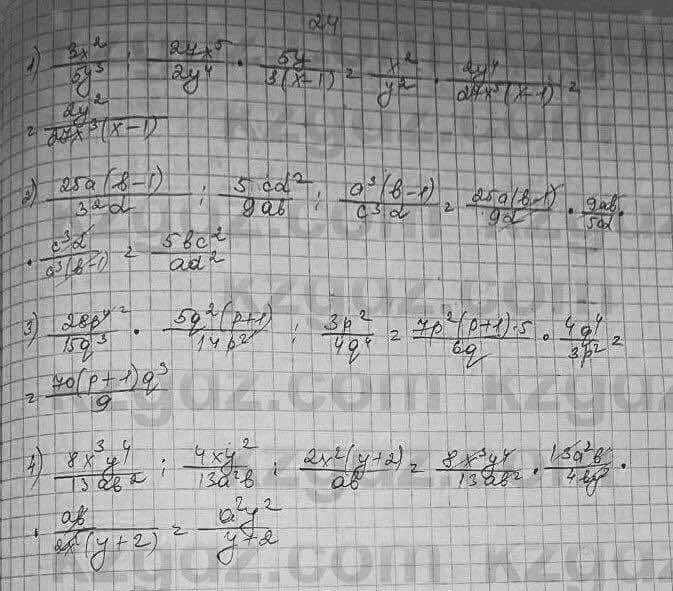 24
1) 3x²/5y³ : 24x⁵/2y⁴ · 5y/3(x-1) = x²/y² · 2y⁴/24x⁵(x-1) =
= 2y²/24x³(x-1)
2) 25a(b-1)/3²d : 5cd²/9ab : a³(b-1)/c³d = 25a(b-1)/9d · 9ab/5cd ·
· c³d/a³(b-1) = 5bc²/ad²
3) 28p⁴/15q³ · 5q²(p+1)/14p² : 3p²/4q⁴ = 7p²(p+1)·5/6q · 4q⁴/3p² =
= 70(p+1)q³/9
4) 8x³y⁴/13ab² : 4xy²/13a²b : 2x²(y+2)/ab = 8x³y⁴/13ab² · 13a²b/4xy² ·
· ab/2x²(y+2) = a²y²/y+2
kzgdz.com